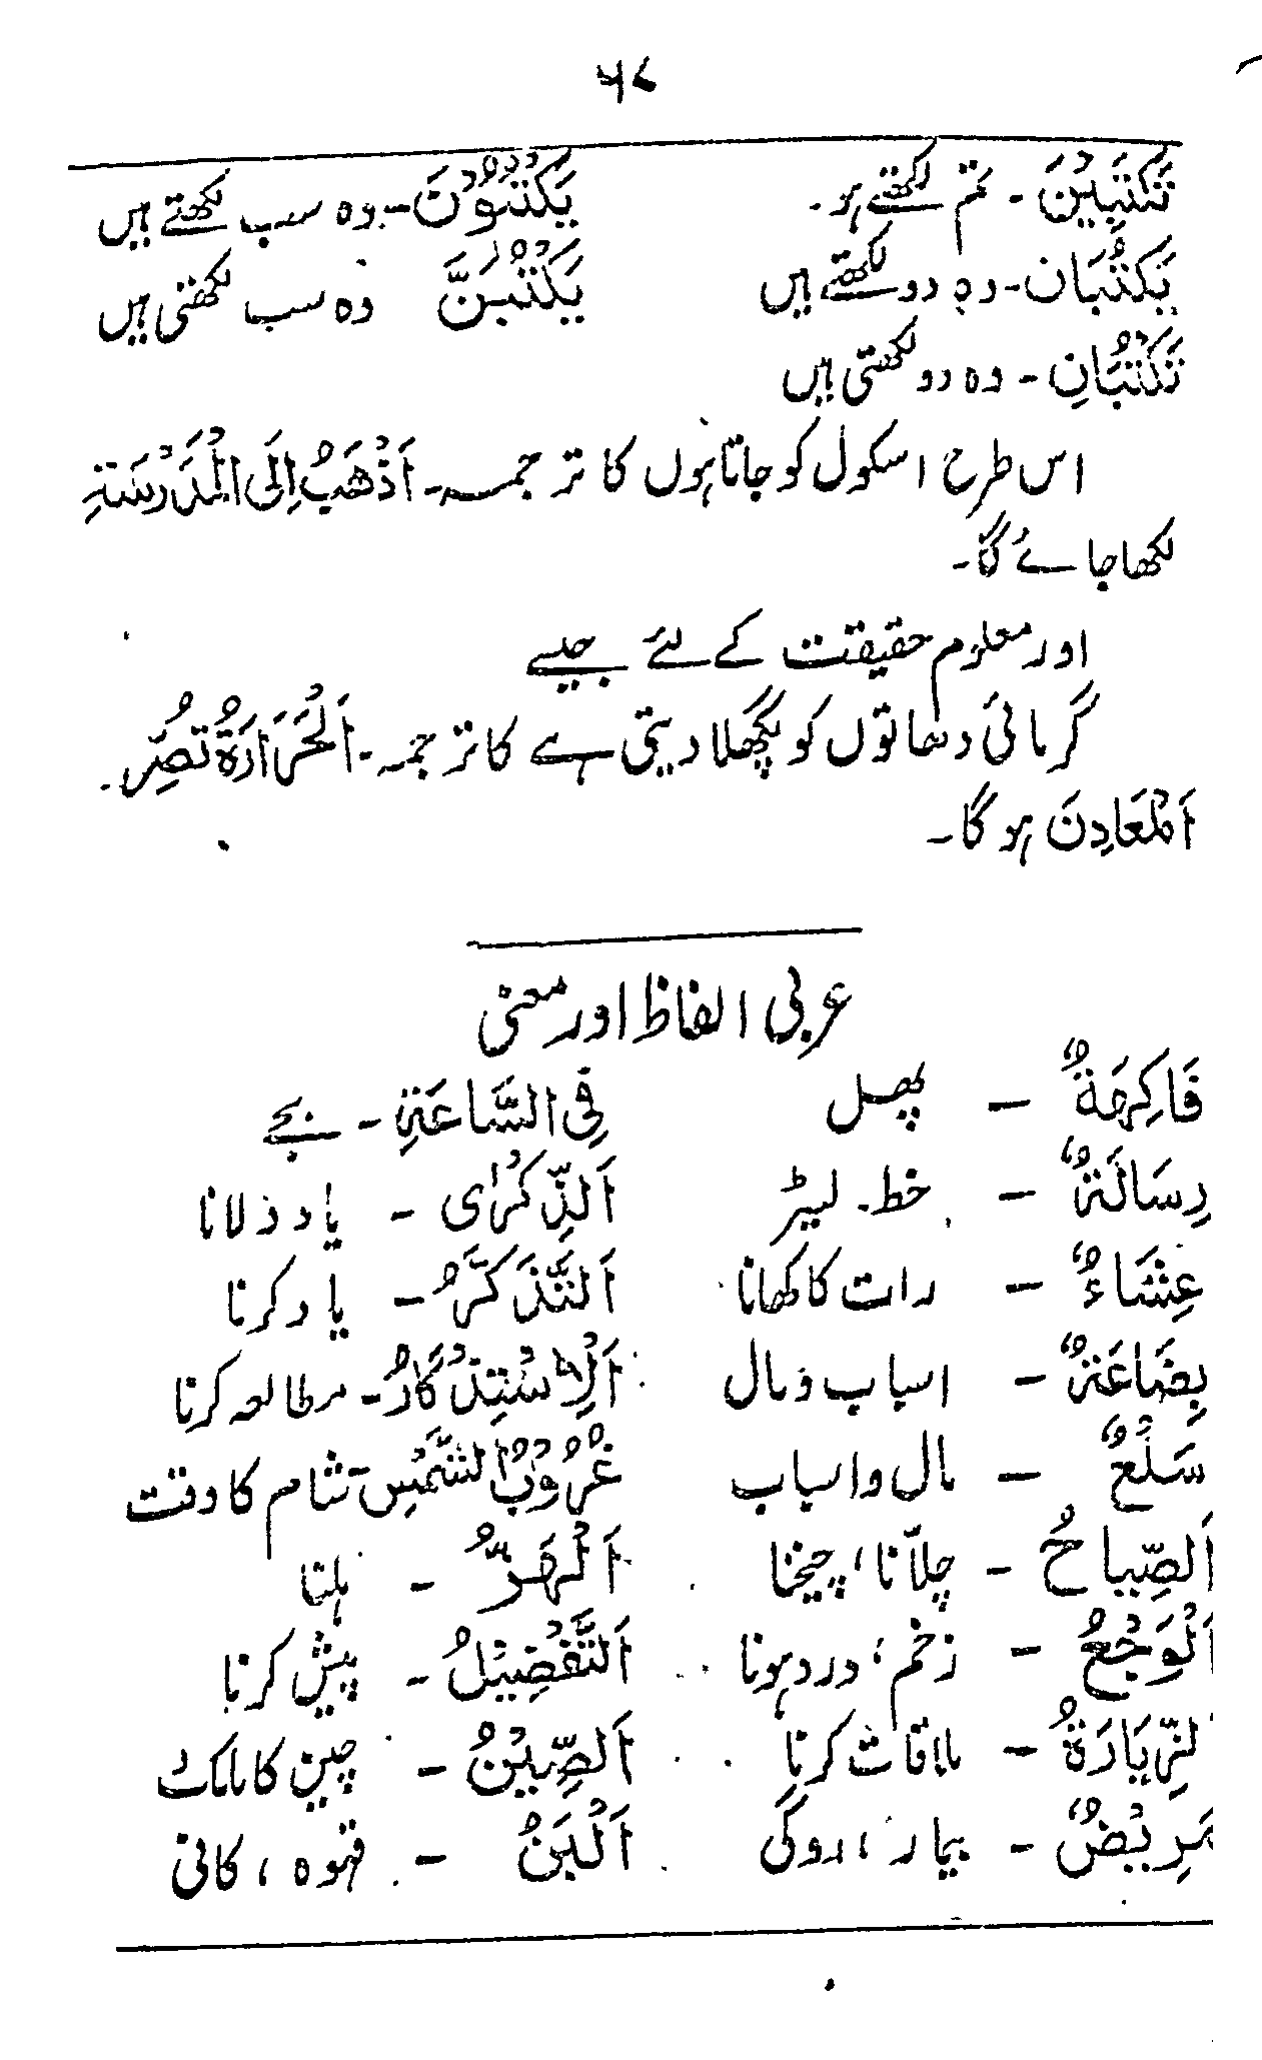 ۶۷
تَكْتُبِيْنَ - تم لکھتے ہو۔ يَكْتُبُوْنَ - وہ سب لکھتے ہیں
يَكْتُبَان - وہ دو لکھتے ہیں يَكْتُبْنَّ وہ سب لکھتی ہیں
تَكْتُبَانِ - وہ دو لکھتی ہیں
اس طرح اسکول کو جاتا ہوں کا ترجمہ - اَذْهَبُ اِلَى الْمَدْرَسَةِ
لکھا جائے گا۔
اور معلوم حقیقت کے لئے جیسے
گرمائی دھاتوں کو پگھلا دیتی ہے کا ترجمہ - اَلْحَرَارَةُ تصُهِر
اَلْمَعَادِنَ ہو گا۔
عربی الفاظ اور معنی
فَاكِهَةٌ - پھل فِى السَّاعَةِ - بجے
رِسَالَةٌ - خط۔ لیٹر اَلذِّكْرٰى - یاد دلانا
عِشَاءٌ - رات کا کھانا اَلتَّذَكَّرُ - یاد کرنا
بِضَاعَةٌ - اسباب و مال اَلْاِسْتِذْكَارُ - مطالعہ کرنا
سَلْعٌ - مال و اسباب غُرُوْبُ الشَّمْسِ - شام کا وقت
اَلصِّيَاحُ - چلّانا، چیخنا اَلْهَزُّ - ہلنا
اَلْوَجْعُ - زخم، درد ہونا اَلتَّفْضِيْلُ - پیش کرنا
لزِّيَارَةُ - ملاقات کرنا اَلصِّيْنُ - چین کا ملک
مَرِيْضٌ - بیمار، روگی اَلْبَنُ - قہوہ، کافی